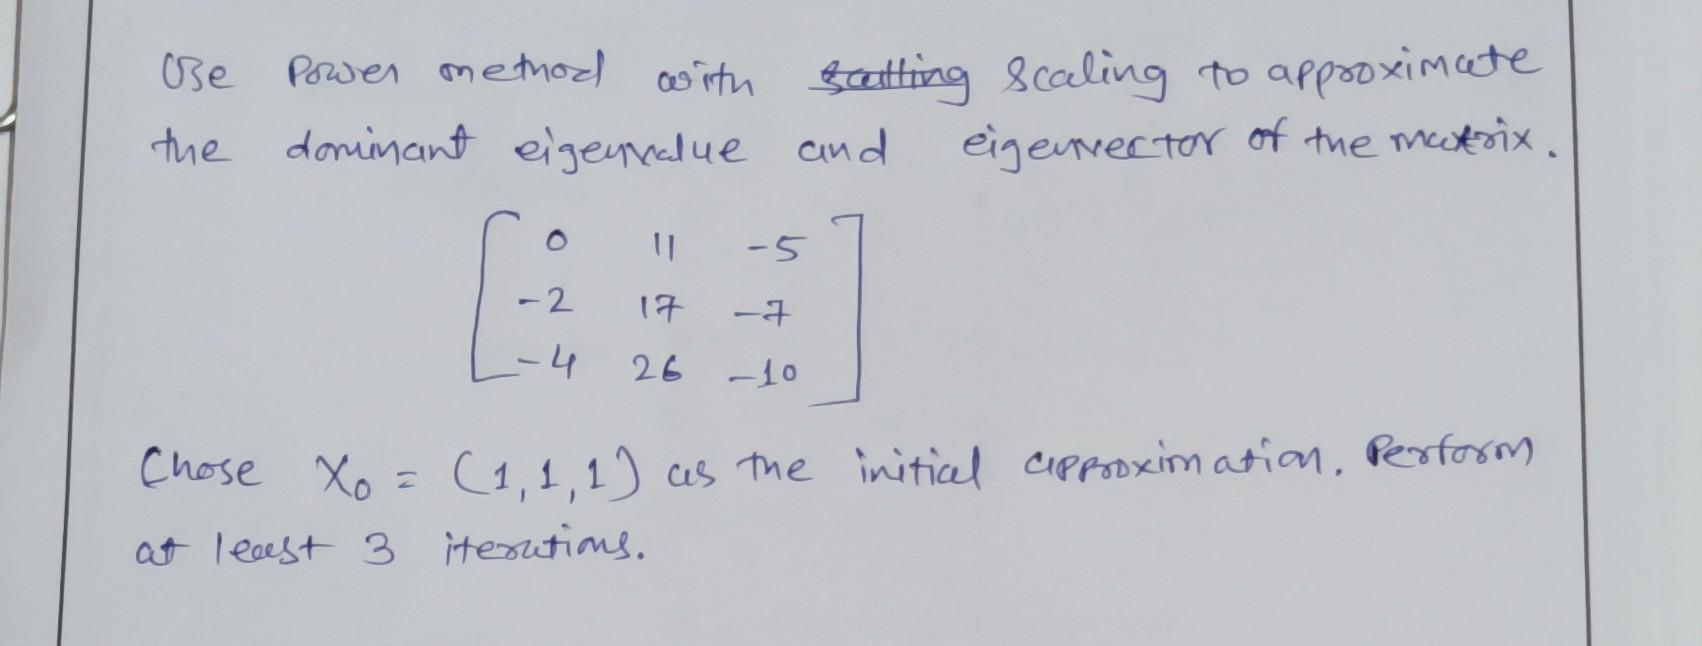 Use Power method with scaling to approximate
the dominant eigenvalue and eigenvector of the matrix.
0 11 -5
-2 17 -7
-4 26 -10
Chose X₀ = (1,1,1) as the initial approximation. Perform
at least 3 iterations.